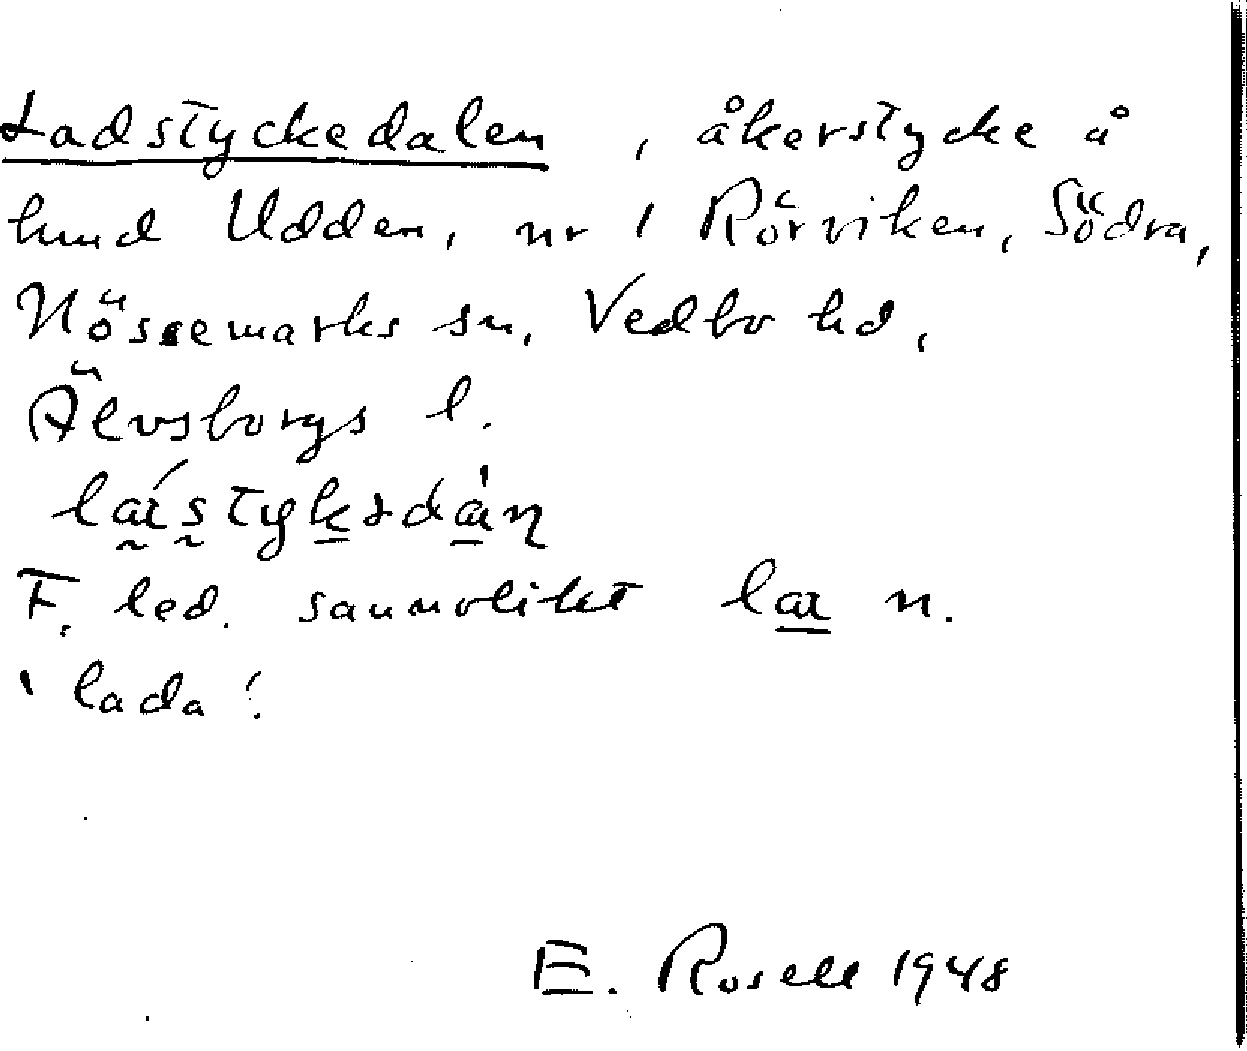 Ladstyckedalen, åkerstycke å
hmd Udden, nr 1 Rörviken, Södra,
Nössemarks sn, Vedbo hd,
Älvsborgs l.
F. led. sannolikt laɪ n.
'lada'.
E. Rosell 1948